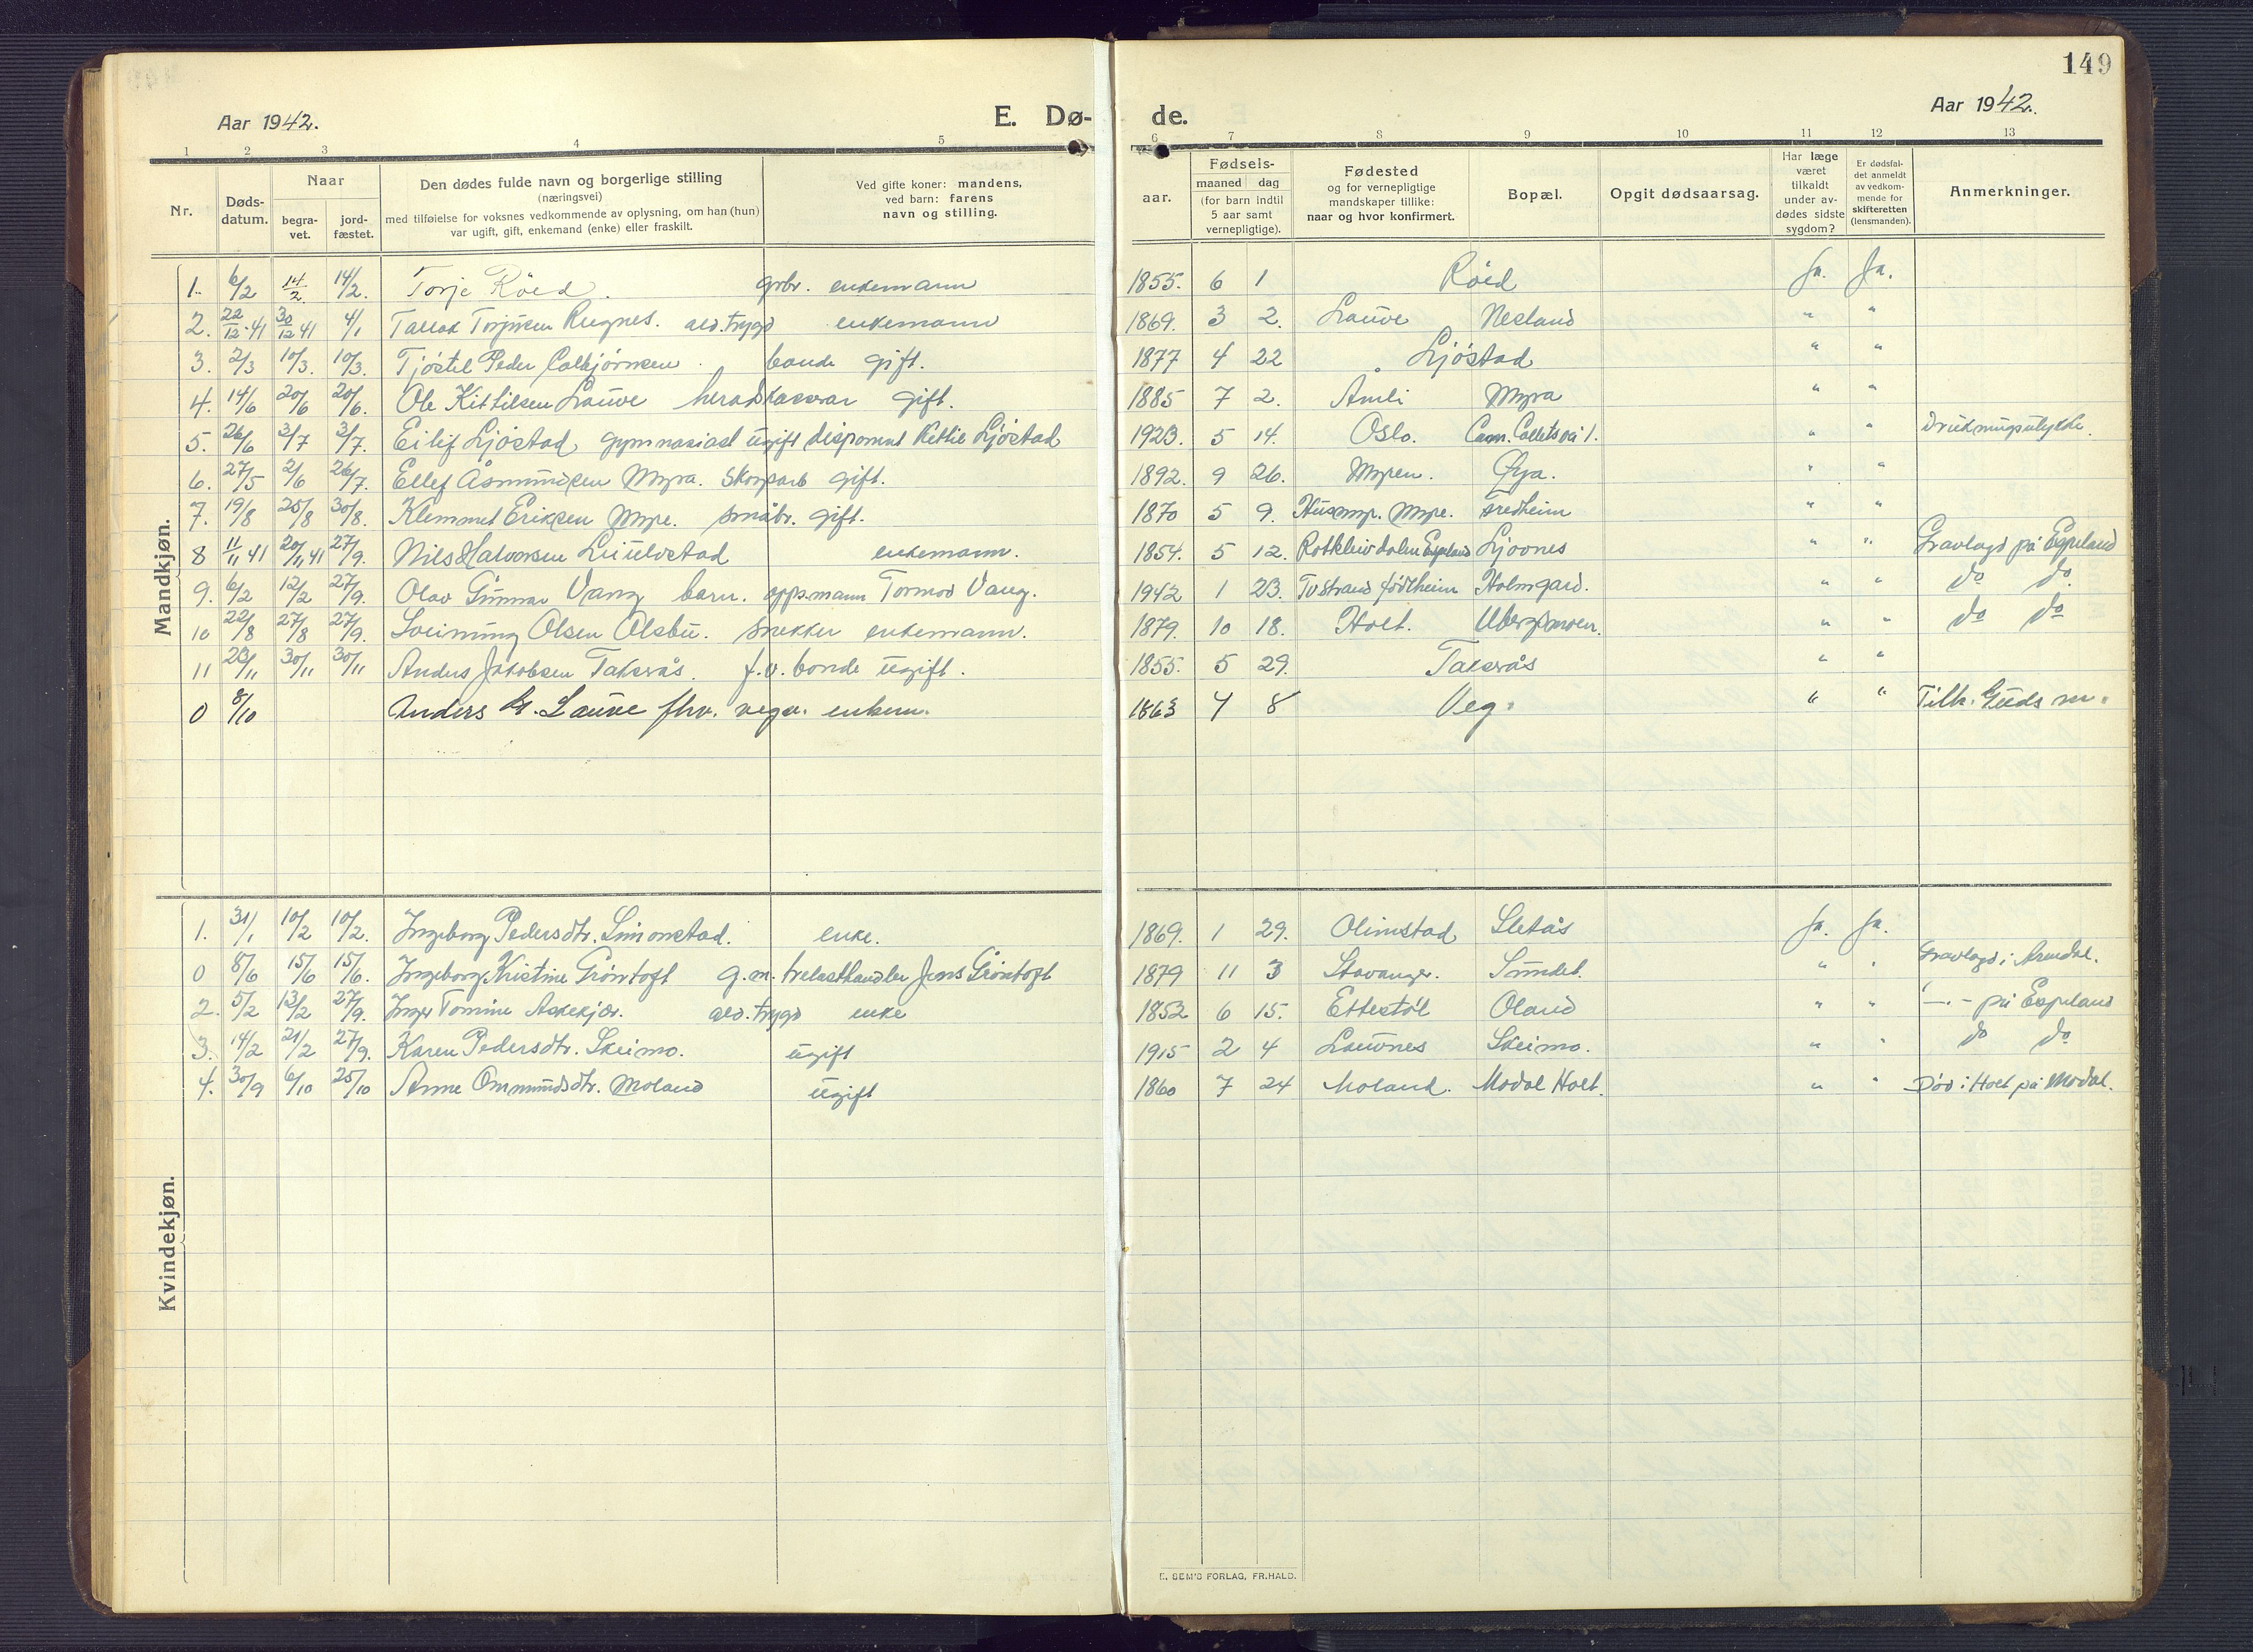 149
Aar 1942.
E. Dø-
de.
Aar 1942.
1 2 3 4 5 6 7 8 9 10 11 12 13
Nr.
Døds-
datum.
Naar
begra-
vet.
jord-
fæstet.
Den dødes fulde navn og borgerlige stilling
(næringsvei)
med tilføielse for voksnes vedkommende av oplysning, om han (hun)
var ugift, gift, enkemand (enke) eller fraskilt.
Ved gifte koner: mandens,
ved barn: farens
navn og stilling.
Fødsels-
aar.
maaned dag
(for barn indtil
5 aar samt
vernepligtige).
Fødested
og for vernepligtige
mandskaper tillike:
naar og hvor konfirmert.
Bopæl.
Opgit dødsaarsag.
Har læge
været
tilkaldt
under av-
dødes sidste
sygdom?
Er dødsfal-
det anmeldt
av vedkom-
mende for
skifteretten
(lensmanden).
Anmerkninger.
Mandkjøn.
1. 6/2 14/2 14/2. Torje Röed. grbr. enkemann 1855. 6 1 Röed Ja. Ja.
2. 22/12-41 30/12 41 4/1 Tallak Terjusen Rugnes. ald.trygd enkemann 1869. 3 2. Lauve Nesland " "
3. 2/3 10/3. 10/3. Tjöstel Peder Calbjörnsen. bonde gift. 1877 4 22 Ljöstad " "
4. 14/6 20/6 20/6. Ole Kittilsen Lauve heradskasserar gift. 1885 7 2. Åmli Myra " "
5. 26/6 3/7 3/7. Eilif Ljöstad, gymnasiast ugift disponent Kettil Ljöstad 1923. 5 14. Oslo. Cam. Colletsvei 1. " " Drukningsulykke.
6. 27/5 2/6 26/7. Ellef Åsmundsen Myra. Skogsarb gift. 1892. 9 26. Myren. Øya. " "
7. 19/8 25/8 30/8. Klemmet Eriksen Myre. småbr. gift. 1870 5 9. Husmpl. Myre. Fredheim " "
8 11/11 41 20/11 41 27/9. Nils Halvorsen Liulvstad enkemann. 1854. 5 12. Espeland Ljovnes " " Gravlagd på Espeland
9. 6/2 12/2 27/9. Olav Gunnar Vang barn. opps.mann Tormod Vang. 1942 1 23. Tvedstrand födeheim Holmgard. " " do do.
10 22/8 27/8 27/9. Sveinung Olsen Olsbu. snekker enkemann. 1879. 10 18. Holt. Ubergsmoen. " " do do
11 23/11 30/11 30/11 Anders Jakobsen Taksrås. f.v. bonde ugift. 1855. 5 29. Taksrås " "
0 8/10 Anders G. Lauve fhv. vegv. enkem. 1863 4 8 Veg. " " Tilh. Guds m.
Kvindekjøn.
1. 31/1 10/2 10/2. Ingeborg Pedersdtr. Simonstad. enke. 1869. 1 29. Olimstad Sletås Ja. Ja.
0 8/6 15/6 15/6. Ingeborg Kristine Gröntoft g.m. trelasthandler Jens Gröntoft 1879 11 3 Stavanger. Sundet. " " Gravlagd i Arendal.
2. 5/2 13/2 27/9. Inger Tomine Askekjær. ald. trygd enke 1852 6 15. Ettestöl Oland " " —"— på Espeland
3. 14/2 21/2 27/9. Karen Pedersdtr. Skeimo. ugift 1915 2 4 Lauvnes Skeimo. " " do do
4. 30/9 6/10 25/10 Anne Ommundsdtr. Moland ugift 1860 7 24 Moland. Modal Holt. " " Död i Holt på Modal.
E. SEM'S FORLAG, FR.HALD.